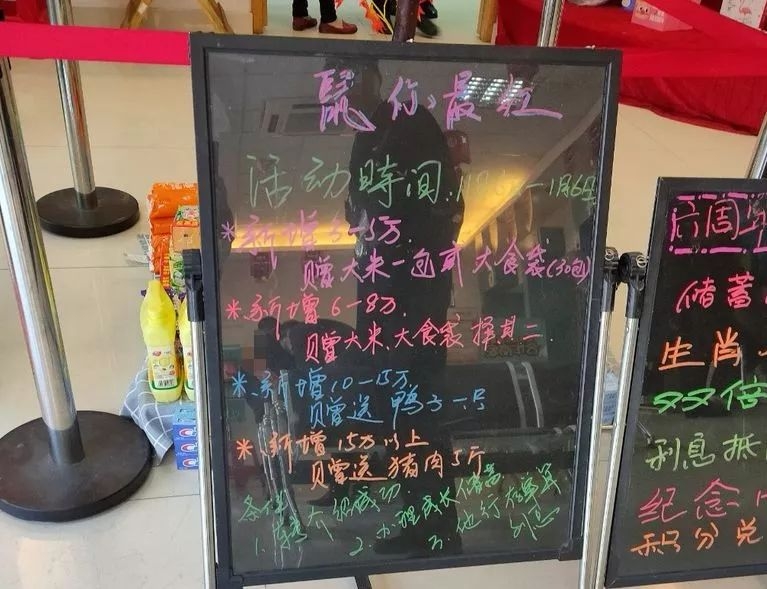 鼠你最红
活动時间:1月3日-1月6日
*新增3-5万
赠大米一包或大食袋(30包)
*新增6-8万
赠大米、大食袋择其二.
*新增10-15万
赠送鸭子一只
*新增15万以上
赠送猪肉5斤
条件
1.转介绍成功. 2.办理成长储蓄 3.他行
储蓄
生肖
双倍
利息抵
纪念
积分兑